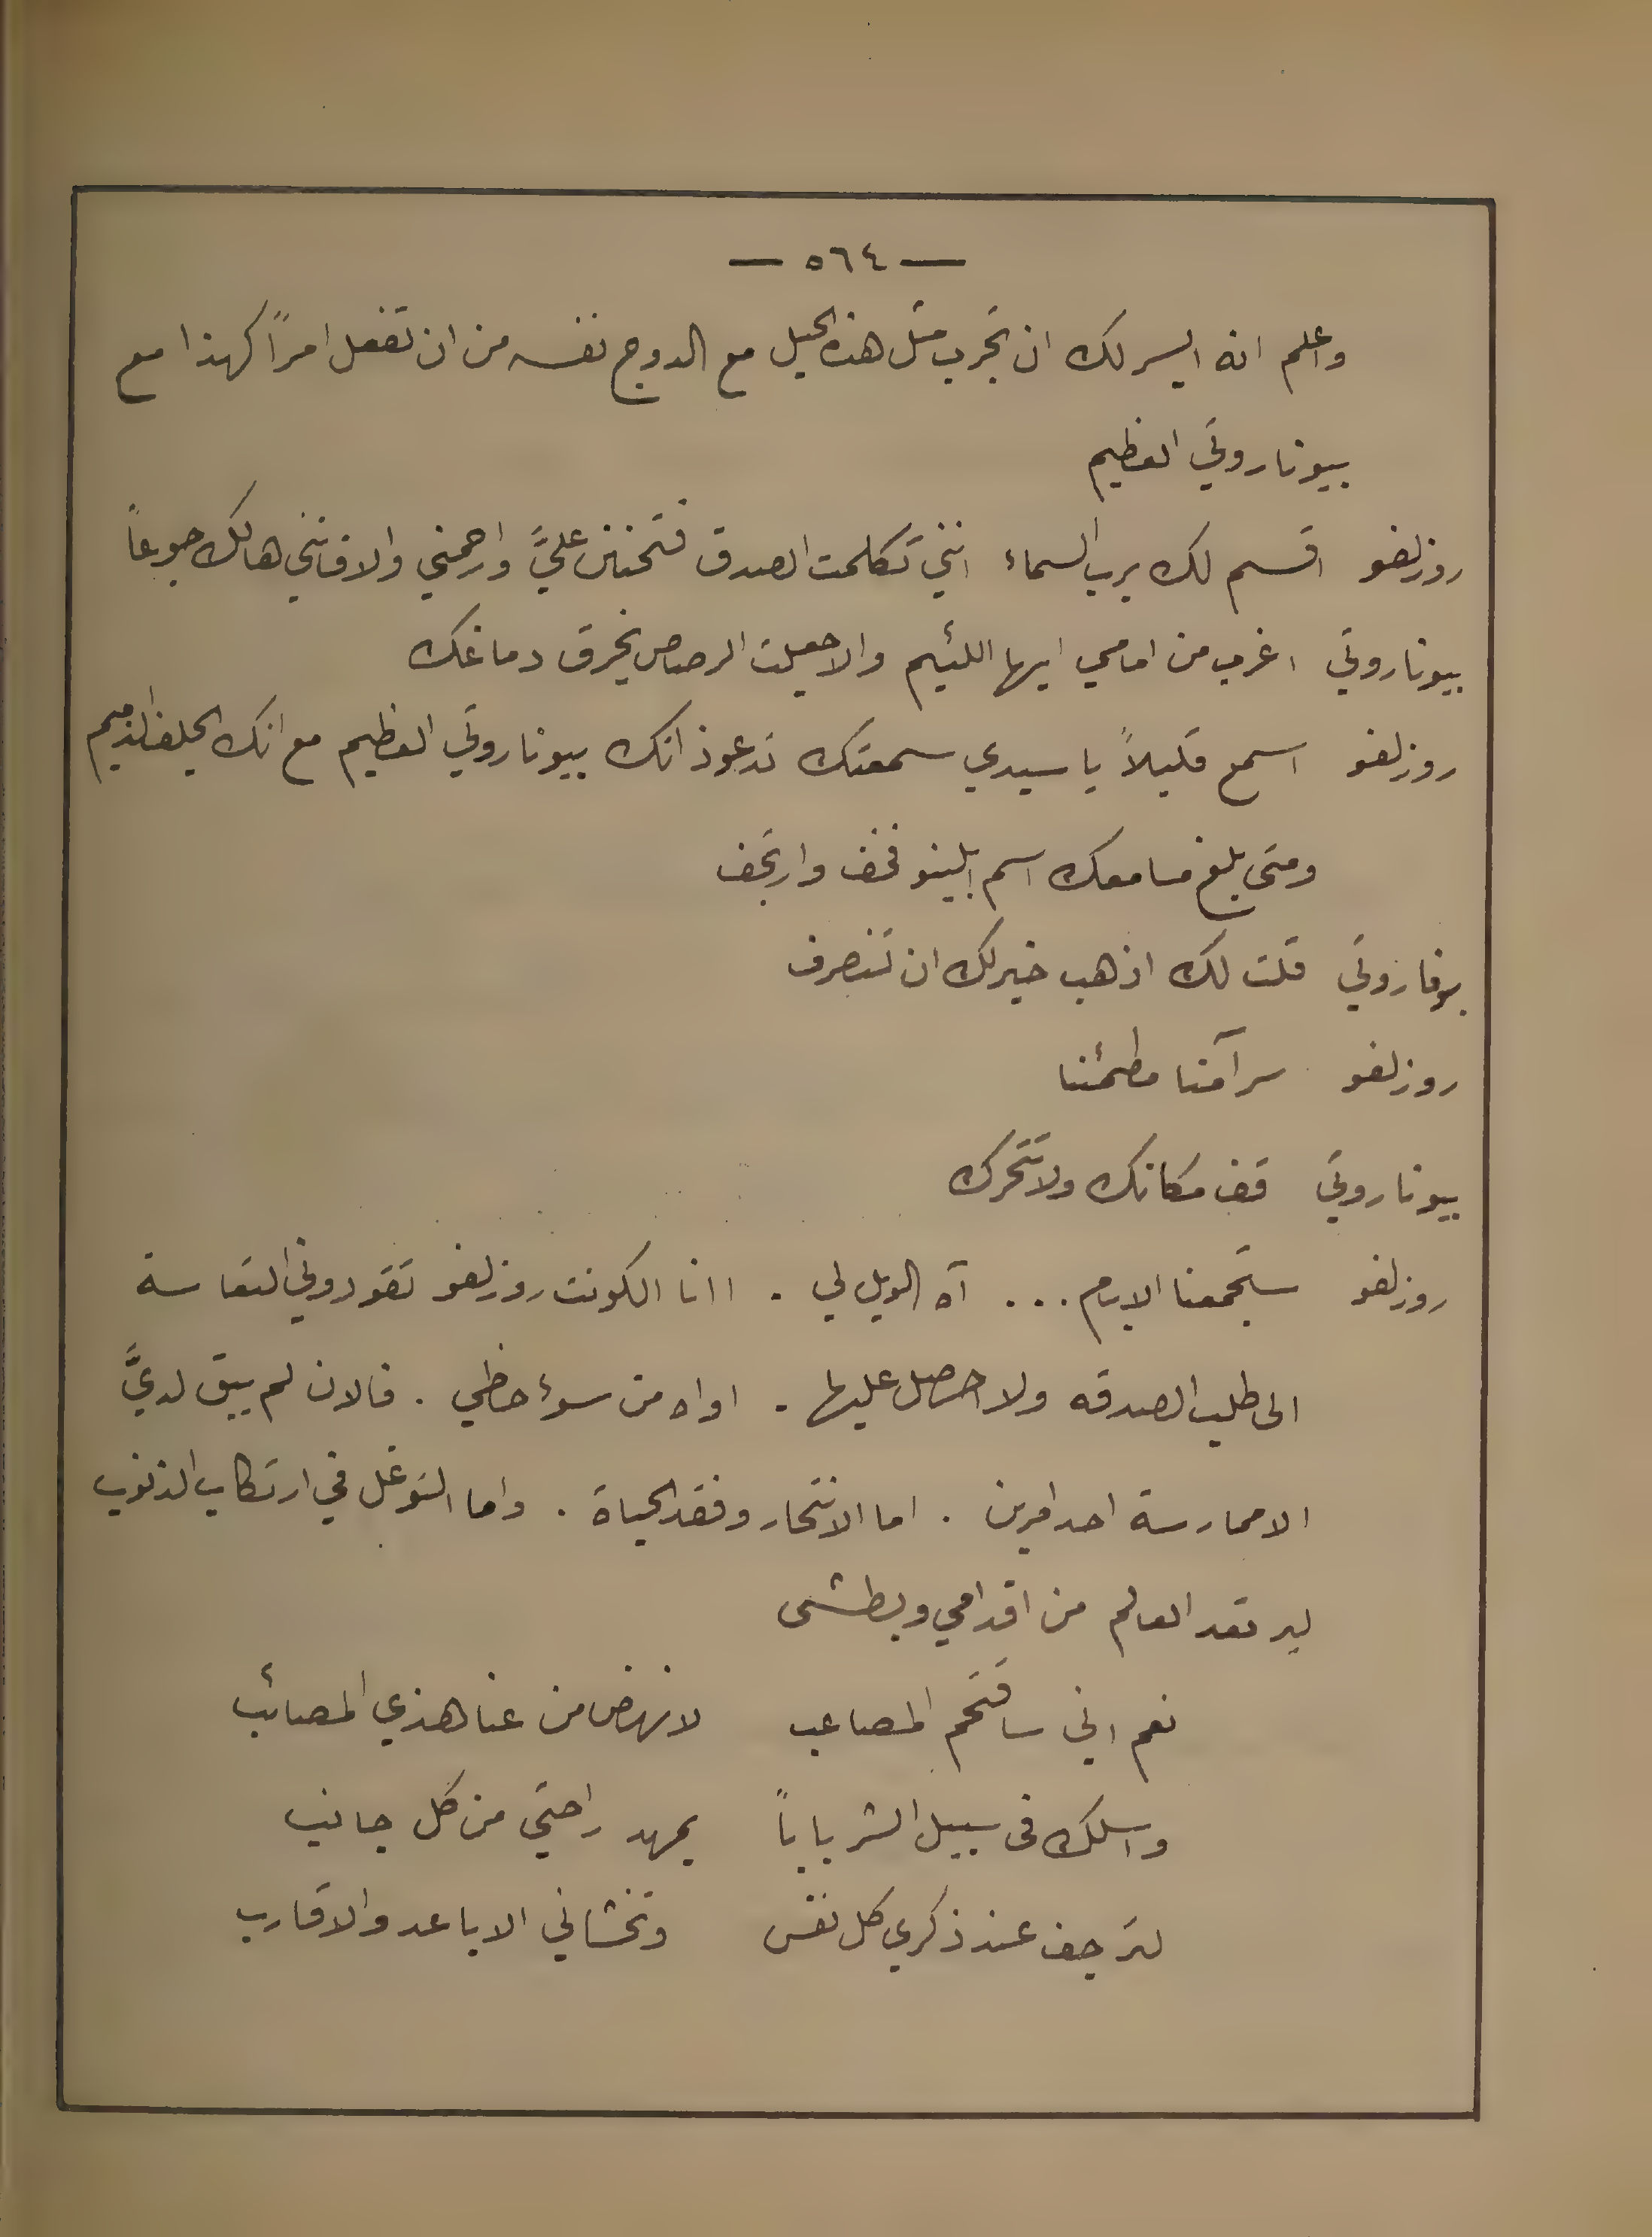 — ٥٦٤ —
واعلم انه ايسر لك ان تجرب مثل هذه الحيل مع الدوج نفسه من ان تفعل امراً كهذا مع
بيوناروتي العظيم
روزلفو اقسم لك برب السماء انني تكلمت الصدق فتحنن عليَّ وارحمني والا فانني هالك جوعاً
بيوناروتي اغرب من امامي ايها اللئيم والا جعلت الرصاص يخرق دماغك
روزلفو اسمع قليلاً يا سيدي سمعتك تدعو ذاتك بيوناروتي العظيم مع انك الجلف الذميم
ومتى بلغ مسامعك اسم ابلينو فخف وارتجف
بوناروتي قلت لك اذهب خير لك ان تنصرف
روزلفو سر آمنا مطمئنا
بيوناروتي قف مكانك ولا تتحرك
روزلفو ستجمعنا الايام ... آه الويل لي . اانا الكونت روزلفو تقودوني التعاسة
الى طلب الصدقه ولا احصل عليها . اواه من سوء حظي . فالان لم يبق لديَّ
الا ممارسة احد امرين . اما الانتحار وفقد الحياة . واما التوغل في ارتكاب الذنوب
ليرتعد العالم من اقدامي وبطشى
نعم اني ساقتحم المصاعب لانهض من عنا هذي المصائب
واسلك فى سبيل الشر باباً يمهد راحتي من كل جانب
لترجف عند ذكري كل نفس وتخشاني الاباعد والاقارب